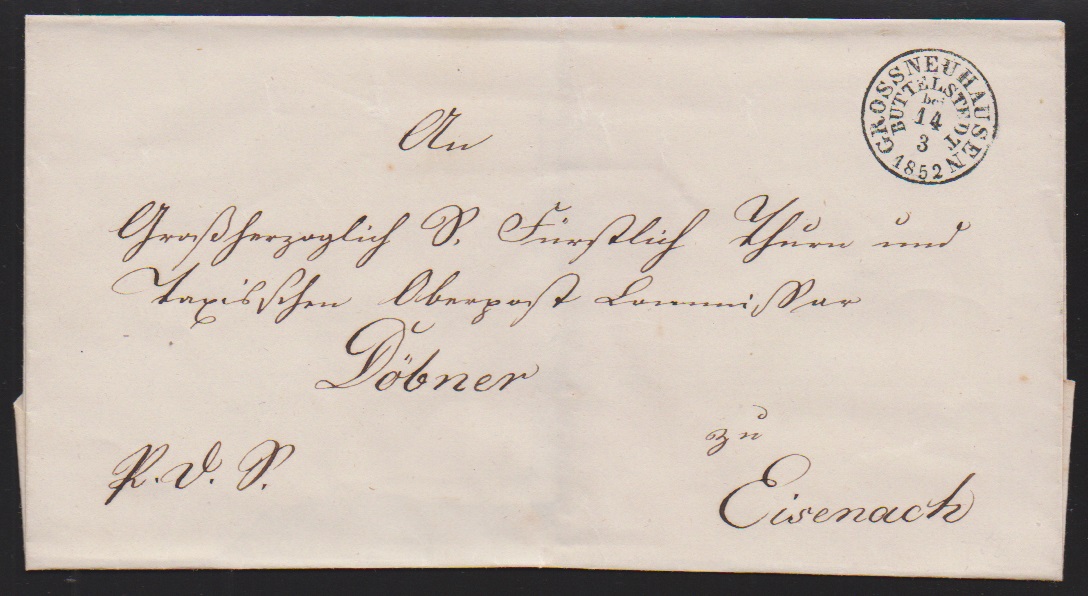 GROSSNEUHAUSEN
BUTTELSTEDT
bei
14
3
1852
An
Großherzoglich S. Fürstlich Thurn und
Taxisschen Oberpost Commissar
Döbner
zu
P. d. S.
Eisenach